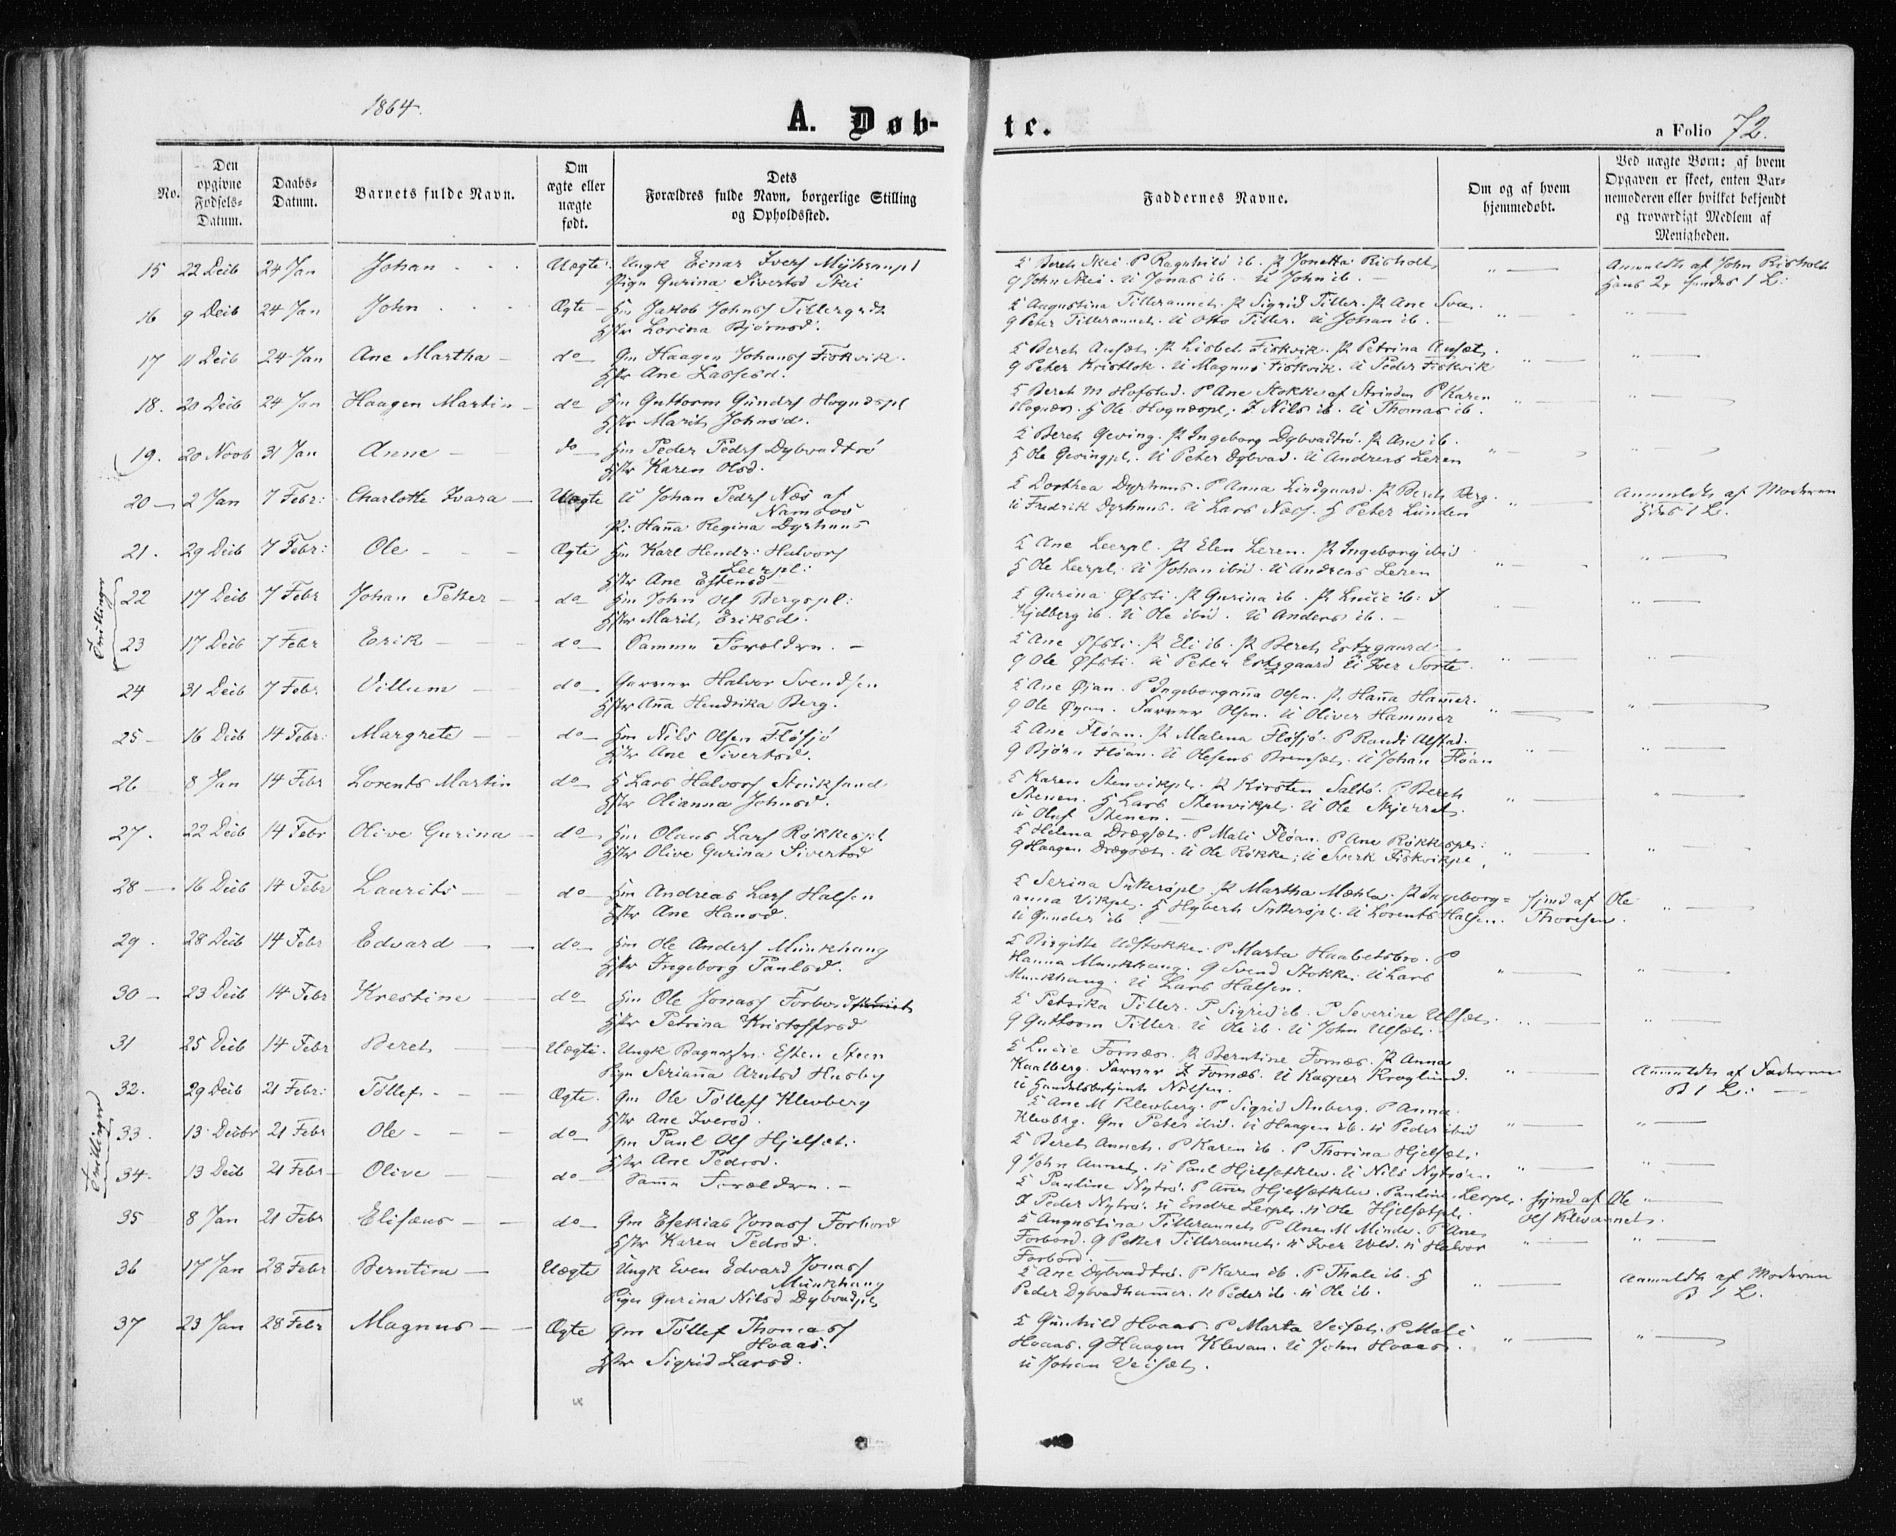 1864.
A. Døb-
te.
a Folio 72.
No.
Den opgivne Fødsels-Datum.
Daabs-Datum.
Barnets fulde Navn.
Om ægte eller uægte født.
Dets Forældres fulde Navn, borgerlige Stilling og Opholdssted.
Faddernes Navne.
Om og af hvem hjemmedøbt.
Ved uægte Børn: af hvem Opgaven er skeet, enten Barnemoderen eller hvilket bekjendt og troværdigt Medlem af Menigheden.
15 22 Deib 24 Jan Johan Uægte: Ungk Einar Ivers
Pign Gurina Sivertsd Skei
Beret Skei P Ragnhild ib. P Jonetta Risholt
John Skei. U Jonas ib. U John ib. —
Anmeldt af John Risholt
16 9 Deib 24 Jan John Ægte — Jakob Johns
Lorina Bjørnsd.
Augustina Tilleraunet. P Sigrid Tiller. P Ane Sva
G Peter Tilleraunet. U Otto Tiller. U Johan ib.
17 11 Deib 24 Jan Ane Martha — do — Gm Haagen Johans Fiskvik.
Ane Lassesd.
Beret Aunsæt. P Lisbet Fiskvik. P Petrina
G Peter U Magnus Fiskvik. U Peder Fiskvik
18. 20 Deib 24 Jan Haagen Martin — do Guttorm
Marit Johnsd.
Beret M Hofstad. P Ane Stokke af Strinden P Karen
Ole I Nils ib. U Thomas ib.
19. 20 Novb 31 Jan Anne — do — Peder Peders Dybvadtrø
Karen Olsd.
Beret Geving. P Ingeborg Dybvadtrø. P Ane ib.
Ole Gevingpl. U Peter Dybvad. U Andreas Leren
20 — 2 Jan 7 Febr: Charlotte Ivara — Uægte U Johan Peders Næs af
Namsos
P: Hanna Regina Dyrhaus
Dorthea Dyrhaus. P Anna Lindgaard. P Beret Berg.
U Fredrik Dyrhaus. U Lars Næss. Peter Lunden
Anmeldt af Moderen
21. 29 Deib 7 Febr: Ole Ægte Karl Hendr: Halvors
Leerpl:
Ane Estensd
Ane Leerpl. P Elen Leren. P Ingeborg ibid
Ole Leerpl. U Johan ibid. U Andreas Leren
Tvillinger
22 17 Deib 7 Febr Johan Petter — do — John Ols Bergspl:
Marit Eriksd.
Gurina Øfsti. P Gurina ib. P Lucie ib: I
Kjelberg ib. U Ole ibid. U Anders ib. —
23 17 Deib 7 Febr Erik — do — Samme Forældre. —
Ane Øfsti. P Eli ib. P Beret Ertzgaard
G Ole Øfsti. U Peter Ertzgaard U Iver Sorte.
24 31 Deib 7 Febr. Villum — do — Garver Halvor Svendsen
Anna Hendrika Berg.
Ane Øjan. P Ingeborganna Olsen. P. Hanna Hammer.
G Ole Øyan. Farver Olsen. U Oliver Hammer
25 — 16 Deib 14 Febr: Margrete — do — Nils Olsen Fløsjø
Ane Sivertsd.
Ane Fløan. P Malena Fløsjø. P Randi Alstad.
G Bjørn Fløan. U Johan Fløan
26 8 Jan 14 Febr Lorents Martin do — Lars Halvors
Olianna Johnsd.
Karen Stenvikpl. P Kirsten Saltø. P Beret
Stenen. Lars Stenvikpl. U Ole
U Oluf Stenen. —
27. 22 Deib 14 Febr Olive Gurina — do — Olaus Lars Røkkespl
Olive Gurina Sivertsd
Helena Drægsæt. P Mali Fløan. P Ane Røkkespl:
G Haagen Drægsæt. U Ole Røkke; U Sverk Fiskvikpl.
28 — 16 Deib 14 Febr Laurits — do — Andreas Lars Halsen
Ane Hansd.
Serina P Martha Mæhla. P Ingeborg-
anna Vikpl. Hybert U Lorents Halsen.
U Gunder ib
Hjmd af Ole
Thoresen.
29. 28 Deib 14 Febr Edvard — do — Ole Anders Munkhaug
Ingeborg Paulsd.
Birgitte Udstokke. P Marta Haabetsbro. P
Hanna Munkhaug. G Svend Stokke. U Lars
Munkhaug. U Lars Halsen.
30 — 23 Deib 14 Febr Krestine — do Ole Jonas
Petrina Kristoffersd
Petrika Tiller. P Sigrid ib. P Severine Ulsæt.
G Guttorm Tiller. U Ole ib. U John Ulsæt. —
31 25 Deib 14 Febr Beret — Uægte. Ungk Esten Steen
Pign Serianna Arntsd Husby
Lucie Fornæs. P Berntine Fornæs. P Anna
Kaalberg. Farver Fornæs. U Kasper Kroglund.
U Handelsbetjent Nilsen.
Anmeldt af Faderen
32. 29 Deib 21 Febr: Tøllef Ægte. Gm Ole Tøllefs Klevberg
Ane Iversd.
Ane M Klevberg. P Sigrid Stuberg. P Anna
Klevbrg. Gm Peter ibid. U Haagen ib. U Peder ibid
Tvillinger
33. 13 Deibr 21 Febr Ole — do — Gm Paul Ols Hjelsæt.
Ane Pedersd.
Beret Aunet. P Karen ib. P Thorina Hjelsæt.
G John Aunet. U Paul Hjelsætklev. U Nils Nytrøen.
34. 13 Deib 21 Febr Olive — do — Samme Forældre. —
Pauline Nytrø. P Anne Hjelsætklev. Pauline Lerpl.
I Peder Nytrø. U Endre Lerpl. U Ole Hjelsætpl.
Hjmd af Ole
Ols Klevaunet.
35 8 Jan 21 Febr Elisæus — do — Gm Esekias Jonass Forbord
Karen Pedersd.
Augustina Tilleraunet P Ane M Minde. P Ane
Forbord. G Petter Tilleraunet. U Iver Vold. U Halvor
Forbord.
36 17 Jan 28 Febr Berntine — Uægte Ungk Even Edvard Jonass
Munkhaug
Pign Gurina Nilsd Dybvadpl
Ane Dybvadtrø. P Karen ib. P Thale ib.
Peder Dybvadhammer. U Peder ib. U Ole ib.
Anmeldt af Moderen
37 23 Jan 28 Febr Magnus — Ægte Gm Tøllef Thomass
Hvaas.
Sigrid Larsd.
Gunhild Hvaas. P Marta Veisæt. P Mali
Hvaas. G Haagen Klevan. U John Hvaas.
U Johan Veisæt.